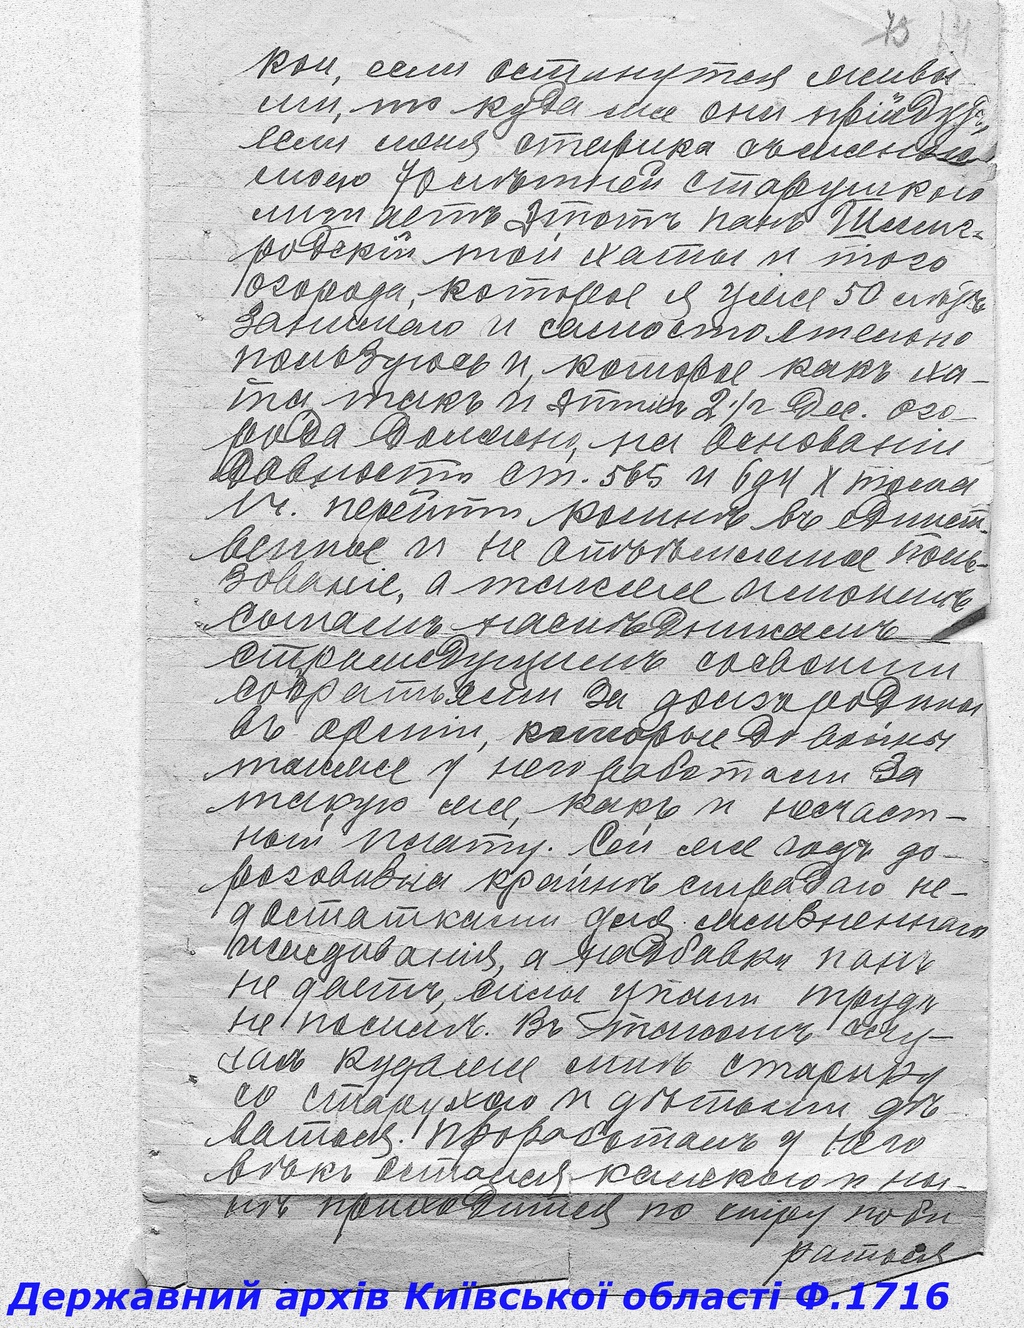 73 14
кои, если останутся живы
ми, то куда же они прійдутъ,
если меня старика съ женою
моею 70 лѣтней старушкою
лишаетъ этотъ панъ
родскій той хаты и того
огорода, которое я уже 50 лѣтъ
занимаю и самостоятельно
пользуюсь и, которое какъ ха-
та такъ и 2 1/2 дес. ого-
рода должно, на основаніи
давности ст. 565 и 694 X тома
1 ч. перейти въ единст-
венное и не отъемлемое поль-
зованіе, а также и моимъ
сынамъ наслѣдникамъ
страждущимъ со своими
собратьями за родины
въ арміи, которые до войны
также у него работали за
такую же, какъ и несчаст-
ной плату. Сей же годъ до-
роговизна крайнѣ страдаю не-
достатками для жизненнаго
а надбавки панъ
не даетъ, силы упали трудъ
не посиленъ. Въ такомъ слу-
чаѣ куда же мнѣ старику
со старухою и дѣтьми дѣ
ваться. Проработалъ у него
вѣкъ остался калѣкою и ны-
нѣ приходится по міру поби
раться
Державний архів Київської області Ф.1716